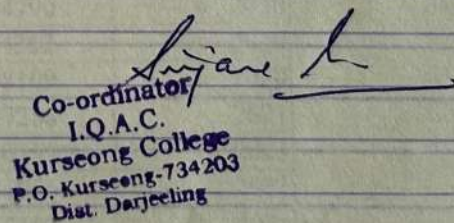 Co-ordinator
I.Q.A.C.
Kurseong College
P.O. Kurseong-734203
Dist. Darjeeling